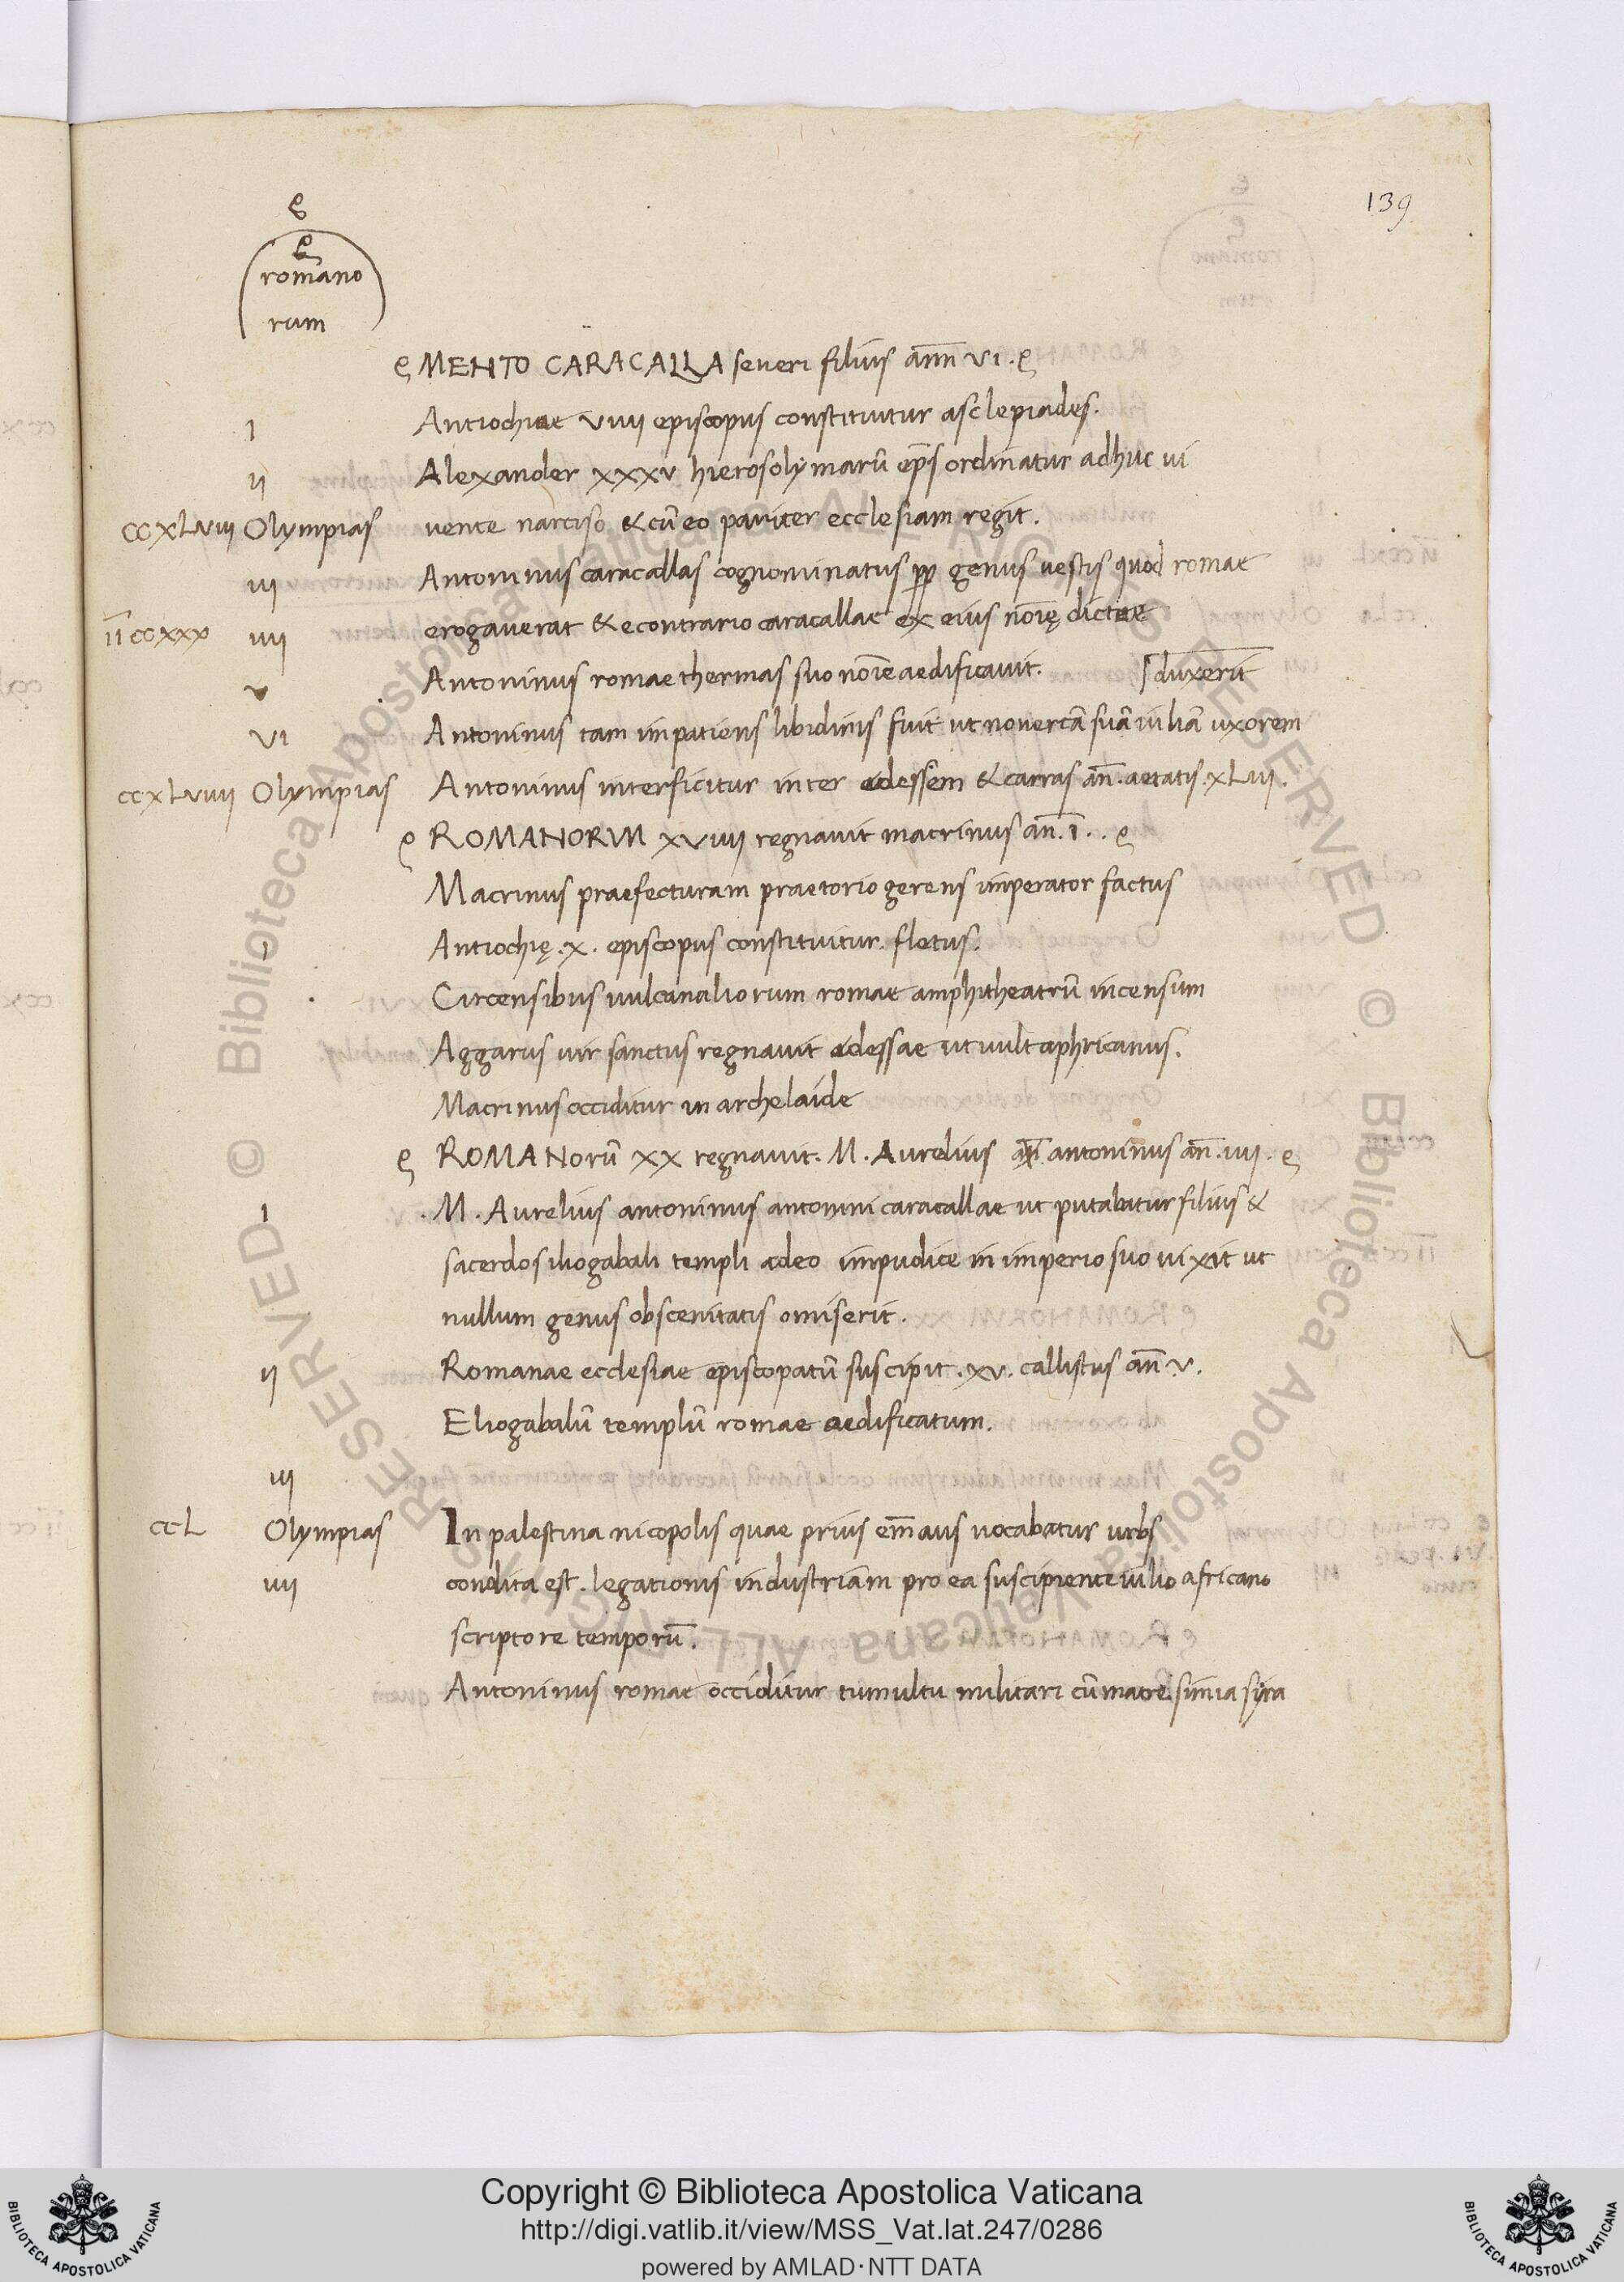 139
romano
rum
MENTO CARACALLA seueri filius ann̄ VI.
I Antiochiae VIIII episcopus constituitur asclepiades.
II Alexander XXXV hierosolymarū ep̄s ordinatur adhuc ui
CCXLVIII Olympias uente narciso & cū eo pariter ecclesiam regit.
III Antoninus caracallas cognominatus pp genus uestis quod romae
II CCXXX IIII erogauerat & econtrario caracallae ex eius noīe dictae
V Antoninus romae thermas suo noīe aedificauit. duxerit
VI Antoninus tam impatiens libidinis fuit ut nouercā suā iuliā uxorem
CCXLVIIII Olympias Antoninus interficitur inter edessem & carras an̄. aetatis. XLIII.
ROMANORUM XVIIII regnauit macrinus an̄. I.
Macrinus praefecturam praetorio gerens imperator factus
I Antiochię. X. episcopus constituitur. fletus.
Circensibus uulcanaliorum romae amphitheatrū incensum
Aggarus uir sanctus regnauit edessae ut uult aphricanus.
Macrinus occiditur in archelaide
ROMANORŪ XX regnauit. M. Aurelius an̄ antoninus an̄. IIII.
I .M. Aurelius antoninus antonini caracallae ut putabatur filius &
sacerdos iliogabali templi adeo impudice in imperio suo uixit ut
nullum genus obscenitatis omiserit.
II Romanae ecclesiae episcopatū suscipit. XV. callistus an̄ V.
Eliogabalū templū romae aedificatum.
III
CCL Olympias In palestina nicopolis quae prius em̄aus uocabatur urbs
IIII condita est. legationis industriam pro ea suscipiente iulio africano
scriptore temporū.
Antoninus romae occiditur tumultu militari cū matre simia syra
Copyright © Biblioteca Apostolica Vaticana
http://digi.vatlib.it/view/MSS_Vat.lat.247/0286
powered by AMLAD·NTT DATA